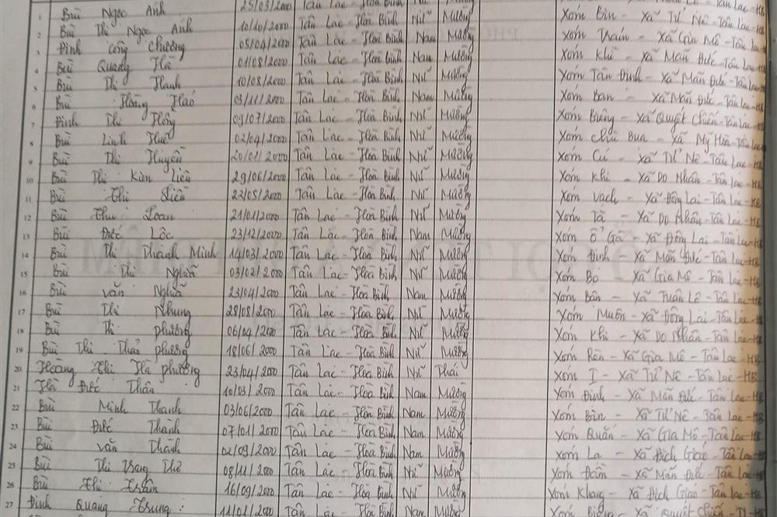 1 Bùi Ngọc Ánh 25/03/2000 Tân Lạc - Hoà Bình Nữ Mường Xóm Bin - Xã Tử Nê - Tân Lạc - HB
2 Bùi Thị Ngọc Ánh 10/10/2000 Tân Lạc - Hoà Bình Nữ Mường Xóm Trám - Xã Gia Mô - Tân Lạc - HB
3 Đinh Công Chương 05/04/2000 Tân Lạc - Hoà Bình Nam Mường Xóm Khi - Xã Mãn Đức - Tân Lạc
4 Bùi Quang Hà 01/08/2000 Tân Lạc - Hoà Bình Nam Mường Xóm Tân Định - Xã Mãn Đức - Tân Lạc
5 Bùi Thị Hạnh 10/08/2000 Tân Lạc - Hoà Bình Nữ Mường Xóm Ban - Xã Mãn Đức - Tân Lạc - HB
6 Bùi Hồng Hao 03/11/2000 Tân Lạc - Hoà Bình Nam Mường Xóm Biệng - Xã Quyết Chiến - Tân Lạc
7 Đinh Thị Hồng 09/07/2000 Tân Lạc - Hoà Bình Nữ Mường Xóm Chù Bụa - Xã Mỹ Hoà - Tân Lạc
8 Bùi Linh Huệ 02/04/2000 Tân Lạc - Hoà Bình Nữ Mường Xóm Cú - Xã Tử Nê - Tân Lạc
9 Bùi Thị Huyền 20/02/2000 Tân Lạc - Hoà Bình Nữ Mường Xóm Khi - Xã Do Nhân - Tân Lạc
10 Bùi Thị Kim Liên 29/06/2000 Tân Lạc - Hoà Bình Nữ Mường Xóm Vạch - Xã Đông Lai - Tân Lạc - HB
11 Bùi Thị Liễu 22/05/2000 Tân Lạc - Hoà Bình Nữ Mường Xóm Tá - Xã Do Nhân - Tân Lạc - HB
12 Bùi Thu Loan 21/01/2000 Tân Lạc - Hoà Bình Nữ Mường Xóm Ổ Gà - Xã Đông Lai - Tân Lạc
13 Bùi Đức Lộc 23/12/2000 Tân Lạc - Hoà Bình Nam Mường Xóm Định - Xã Mãn Đức - Tân Lạc - HB
14 Bùi Thị Thanh Minh 14/03/2000 Tân Lạc - Hoà Bình Nữ Mường Xóm Bo - Xã Gia Mô - Tân Lạc - HB
15 Bùi Thị Nghĩa 03/02/2000 Tân Lạc - Hoà Bình Nữ Mường Xóm Bân - Xã Tuân Lộ - Tân Lạc - HB
16 Bùi Văn Nghĩa 23/04/2000 Tân Lạc - Hoà Bình Nam Mường Xóm Muôn - Xã Đông Lai - Tân Lạc - HB
17 Bùi Thị Nhung 28/08/2000 Tân Lạc - Hoà Bình Nữ Mường Xóm Khi - Xã Do Nhân - Tân Lạc - HB
18 Bùi Thị Phương 06/04/2000 Tân Lạc - Hoà Bình Nữ Mường Xóm Rên - Xã Gia Mô - Tân Lạc - HB
19 Bùi Thị Thảo Phương 18/06/2000 Tân Lạc - Hoà Bình Nữ Mường Xóm I - Xã Tử Nê - Tân Lạc - HB
20 Hoàng Thị Hà Phương 23/04/2000 Tân Lạc - Hoà Bình Nữ Thái Xóm Định - Xã Mãn Đức - Tân Lạc - HB
21 Hà Đức Thân 10/03/2000 Tân Lạc - Hoà Bình Nam Mường Xóm Bin - Xã Tử Nê - Tân Lạc - HB
22 Bùi Minh Thanh 03/06/2000 Tân Lạc - Hoà Bình Nam Mường Xóm Quắn - Xã Gia Mô - Tân Lạc - HB
23 Bùi Đức Thành 07/01/2000 Tân Lạc - Hoà Bình Nam Mường Xóm La - Xã Địch Giáo - Tân Lạc - HB
24 Bùi Văn Thành 02/09/2000 Tân Lạc - Hoà Bình Nam Mường Xóm Đầm - Xã Mãn Đức - Tân Lạc - HB
25 Bùi Thị Trang Thơ 08/11/2000 Tân Lạc - Hoà Bình Nữ Mường Xóm Khang - Xã Địch Giáo - Tân Lạc - HB
26 Bùi Thị Trầm 16/09/2000 Tân Lạc - Hoà Bình Nữ Mường Xóm Biệng - Xã Quyết Chiến - TL - HB
27 Đinh Quang Trung 11/01/2000 Tân Lạc - Hoà Bình Nam Mường